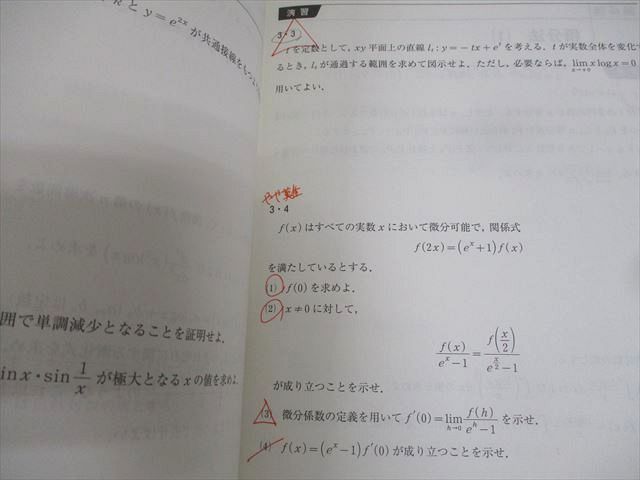 と y=e^{2x} が共通接線をもつ
囲で単調減少となることを証明せよ.
in x・sin 1/x が極大となる x の値を求めよ.
演習
3・3
t を定数として, xy 平面上の直線 l_t : y=-tx+e^t を考える. t が実数全体を変化
るとき, l_t が通過する範囲を求めて図示せよ. ただし, 必要ならば, lim_{x→+0} x log x=0
用いてよい.
やや難
3・4
f(x) はすべての実数 x において微分可能で, 関係式
f(2x)=(e^x+1)f(x)
を満たしているとする.
(1) f(0) を求めよ.
(2) x≠0 に対して,
f(x)/(e^x-1)=f(x/2)/(e^{x/2}-1)
が成り立つことを示せ.
(3) 微分係数の定義を用いて f'(0)=lim_{h→0} f(h)/(e^h-1) を示せ.
(4) f(x)=(e^x-1)f'(0) が成り立つことを示せ.